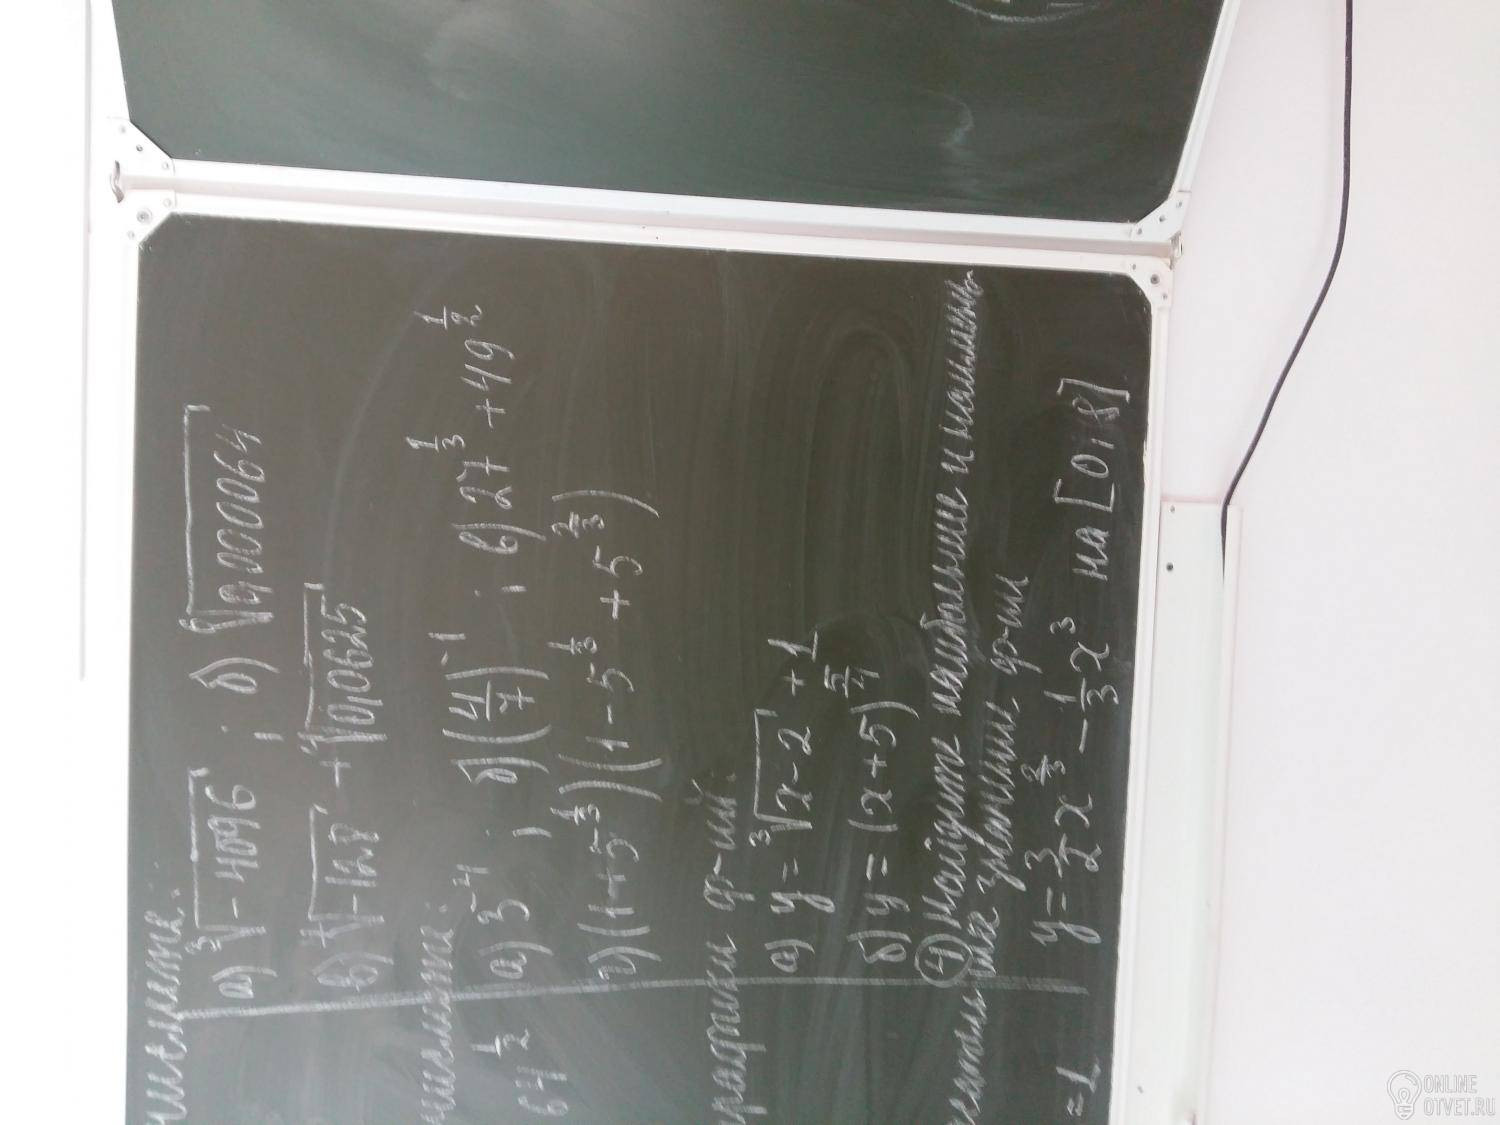 числите:
а) ∛-4096 ; б) ⁶√0,000064
в) ⁷√-128 + ⁴√0,0625
числите:
64^(1/2) а) 3^-4 ; б) (4/7)^-1 ; в) 27^(1/3) + 49^(1/2)
г) (1+5^(1/3))(1-5^(1/3)+5^(2/3))
графики ф-ий:
а) y = ∛x-2 + 1
б) y = (x+5)^(5/4)
④ Найдите наибольшее и наимень-
шее значение ф-ии
= 1 y = 3/2 x^(2/3) - 1/3 x^3 на [0;8]
ONLINE
OTVET.RU